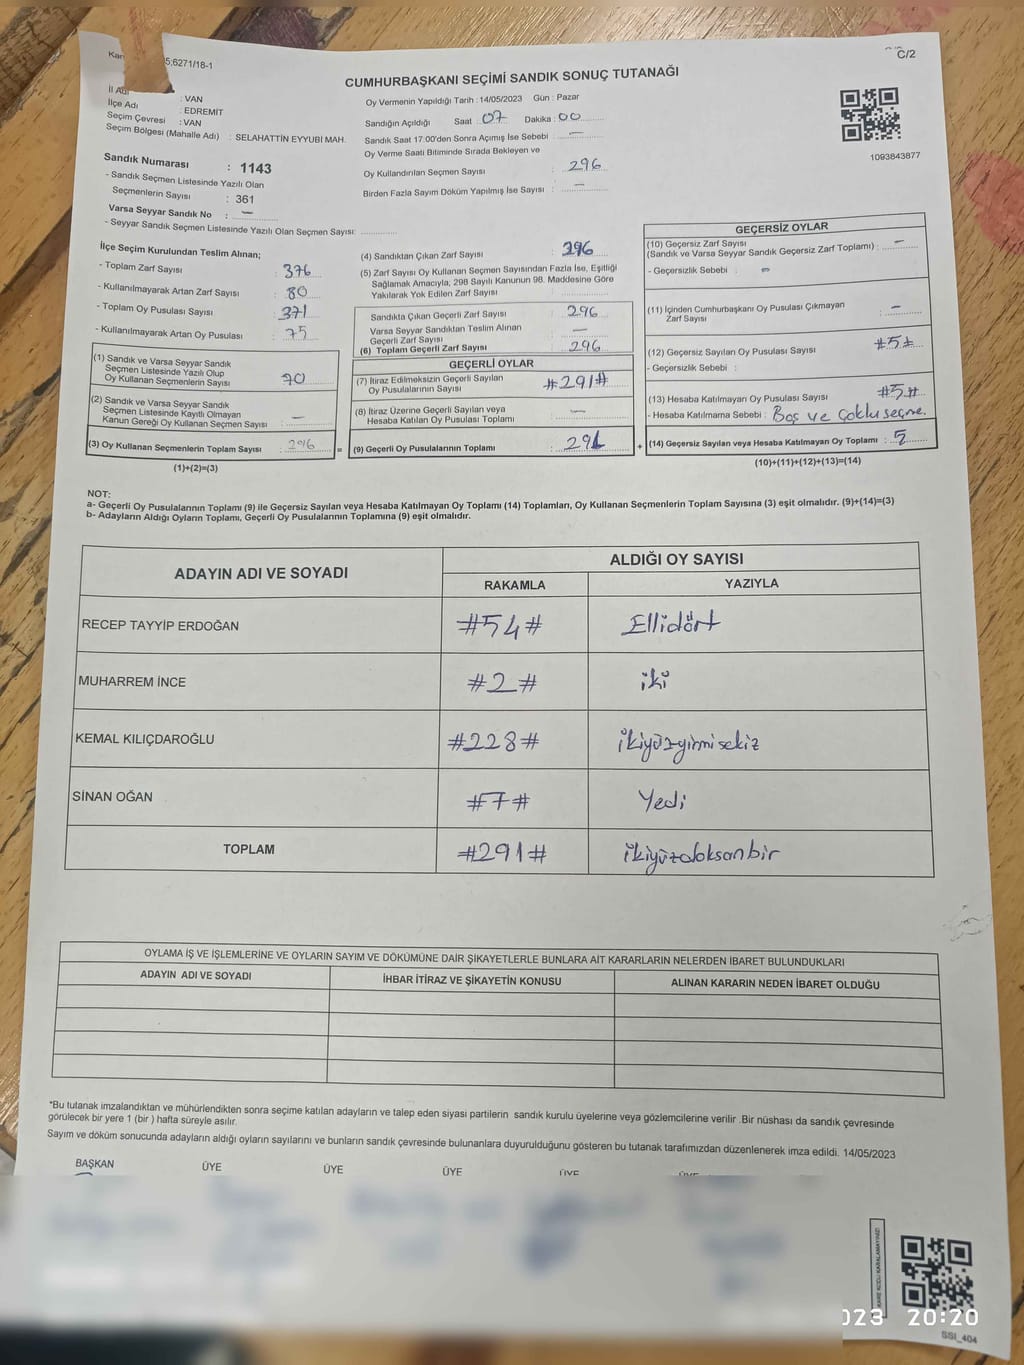 5;6271/18-1
C/2
CUMHURBAŞKANI SEÇİMİ SANDIK SONUÇ TUTANAĞI
İl Adı : VAN
İlçe Adı : EDREMIT
Seçim Çevresi : VAN
Seçim Bölgesi (Mahalle Adı) : SELAHATTİN EYYUBİ MAH.
Sandık Numarası : 1143
- Sandık Seçmen Listesinde Yazılı Olan
Seçmenlerin Sayısı : 361
Varsa Seyyar Sandık No : —
- Seyyar Sandık Seçmen Listesinde Yazılı Olan Seçmen Sayısı :
Oy Vermenin Yapıldığı Tarih : 14/05/2023 Gün : Pazar
Sandığın Açıldığı Saat : 07 Dakika : 00
Sandık Saat 17.00'den Sonra Açımış İse Sebebi : —
Oy Verme Saati Bitiminde Sırada Bekleyen ve
Oy Kullandırılan Seçmen Sayısı : 296
Birden Fazla Sayım Döküm Yapılmış İse Sayısı : —
1093843877
İlçe Seçim Kurulundan Teslim Alınan;
- Toplam Zarf Sayısı : 376
- Kullanılmayarak Artan Zarf Sayısı : 80
- Toplam Oy Pusulası Sayısı : 371
- Kullanılmayarak Artan Oy Pusulası : 75
(1) Sandık ve Varsa Seyyar Sandık
Seçmen Listesinde Yazılı Olup
Oy Kullanan Seçmenlerin Sayısı : 90
(2) Sandık ve Varsa Seyyar Sandık
Seçmen Listesinde Kayıtlı Olmayan
Kanun Gereği Oy Kullanan Seçmen Sayısı : —
(3) Oy Kullanan Seçmenlerin Toplam Sayısı : 296
(1)+(2)=(3)
(4) Sandıktan Çıkan Zarf Sayısı : 296
(5) Zarf Sayısı Oy Kullanan Seçmen Sayısından Fazla İse, Eşitliği
Sağlamak Amacıyla, 298 Sayılı Kanunun 98. Maddesine Göre
Yakılarak Yok Edilen Zarf Sayısı :
Sandıkta Çıkan Geçerli Zarf Sayısı : 296
Varsa Seyyar Sandıktan Teslim Alınan
Geçerli Zarf Sayısı : —
(6) Toplam Geçerli Zarf Sayısı : 296
GEÇERLİ OYLAR
(7) İtiraz Edilmeksizin Geçerli Sayılan
Oy Pusulalarının Sayısı : #291#
(8) İtiraz Üzerine Geçerli Sayılan veya
Hesaba Katılan Oy Pusulası Toplamı : —
= (9) Geçerli Oy Pusulalarının Toplamı : 291 +
GEÇERSİZ OYLAR
(10) Geçersiz Zarf Sayısı
(Sandık ve Varsa Seyyar Sandık Geçersiz Zarf Toplamı) : —
- Geçersizlik Sebebi : —
(11) İçinden Cumhurbaşkanı Oy Pusulası Çıkmayan
Zarf Sayısı : —
(12) Geçersiz Sayılan Oy Pusulası Sayısı : #5#
- Geçersizlik Sebebi :
(13) Hesaba Katılmayan Oy Pusulası Sayısı : #5#
- Hesaba Katılmama Sebebi : Boş ve çoklu seçme.
(14) Geçersiz Sayılan veya Hesaba Katılmayan Oy Toplamı : 5
(10)+(11)+(12)+(13)=(14)
NOT:
a- Geçerli Oy Pusulalarının Toplamı (9) ile Geçersiz Sayılan veya Hesaba Katılmayan Oy Toplamı (14) Toplamları, Oy Kullanan Seçmenlerin Toplam Sayısına (3) eşit olmalıdır. (9)+(14)=(3)
b- Adayların Aldığı Oyların Toplamı, Geçerli Oy Pusulalarının Toplamına (9) eşit olmalıdır.
ADAYIN ADI VE SOYADI ALDIĞI OY SAYISI
RAKAMLA YAZIYLA
RECEP TAYYİP ERDOĞAN #54# Ellidört
MUHARREM İNCE #2# iki
KEMAL KILIÇDAROĞLU #228# ikiyüzyirmisekiz
SİNAN OĞAN #7# Yedi
TOPLAM #291# ikiyüzdoksanbir
OYLAMA İŞ VE İŞLEMLERİNE VE OYLARIN SAYIM VE DÖKÜMÜNE DAİR ŞİKAYETLERLE BUNLARA AİT KARARLARIN NELERDEN İBARET BULUNDUKLARI
ADAYIN ADI VE SOYADI İHBAR İTİRAZ VE ŞİKAYETİN KONUSU ALINAN KARARIN NEDEN İBARET OLDUĞU
*Bu tutanak imzalandıktan ve mühürlendikten sonra seçime katılan adayların ve talep eden siyasi partilerin sandık kurulu üyelerine veya gözlemcilerine verilir .Bir nüshası da sandık çevresinde
görülecek bir yere 1 (bir ) hafta süreyle asılır.
Sayım ve döküm sonucunda adayların aldığı oyların sayılarını ve bunların sandık çevresinde bulunanlara duyurulduğunu gösteren bu tutanak tarafımızdan düzenlenerek imza edildi. 14/05/2023
BAŞKAN ÜYE ÜYE ÜYE ÜYE ÜYE
KARE KODU KARALAMAYINIZ!
023 20:20
SSI_404